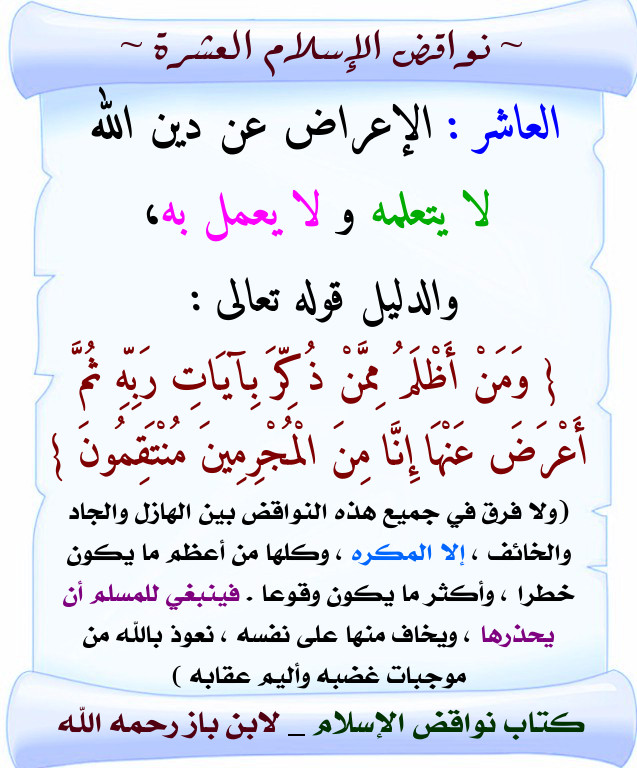 ~ نواقض الإسلام العشرة ~
العاشر : الإعراض عن دين الله
لا يتعلمه و لا يعمل به،
والدليل قوله تعالى :
{ وَمَنْ أَظْلَمُ مِمَّنْ ذُكِّرَ بِآيَاتِ رَبِّهِ ثُمَّ
أَعْرَضَ عَنْهَا إِنَّا مِنَ الْمُجْرِمِينَ مُنْتَقِمُونَ }
(ولا فرق في جميع هذه النواقض بين الهازل والجاد
والخائف ، إلا المكره ، وكلها من أعظم ما يكون
خطرا ، وأكثر ما يكون وقوعا . فينبغي للمسلم أن
يحذرها ، ويخاف منها على نفسه ، نعوذ بالله من
موجبات غضبه وأليم عقابه )
كتاب نواقض الإسلام _ لابن باز رحمه الله